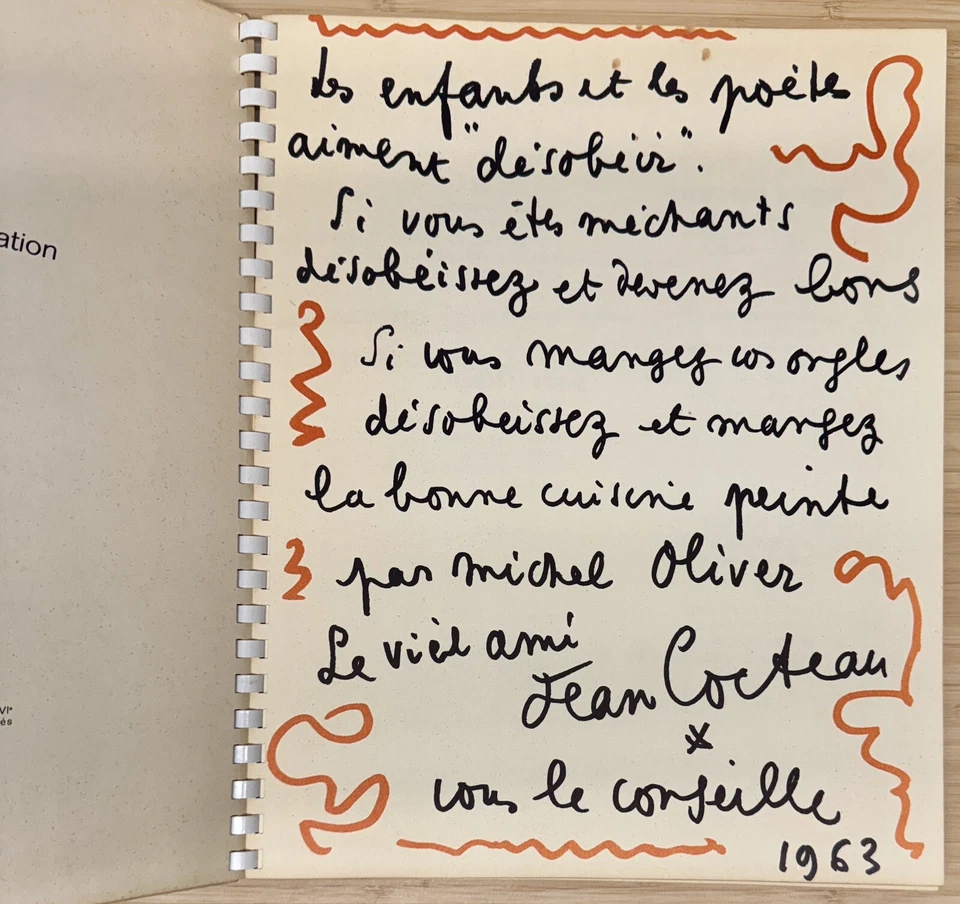 ation
VIe
és
Les enfants et les poètes
aiment "désobéir".
Si vous êtes méchants
désobéissez et devenez bons
Si vous mangez vos ongles
désobeissez et mangez
la bonne cuisine peinte
par michel Oliver
Le vieil ami
Jean Cocteau
vous le conseille
1963